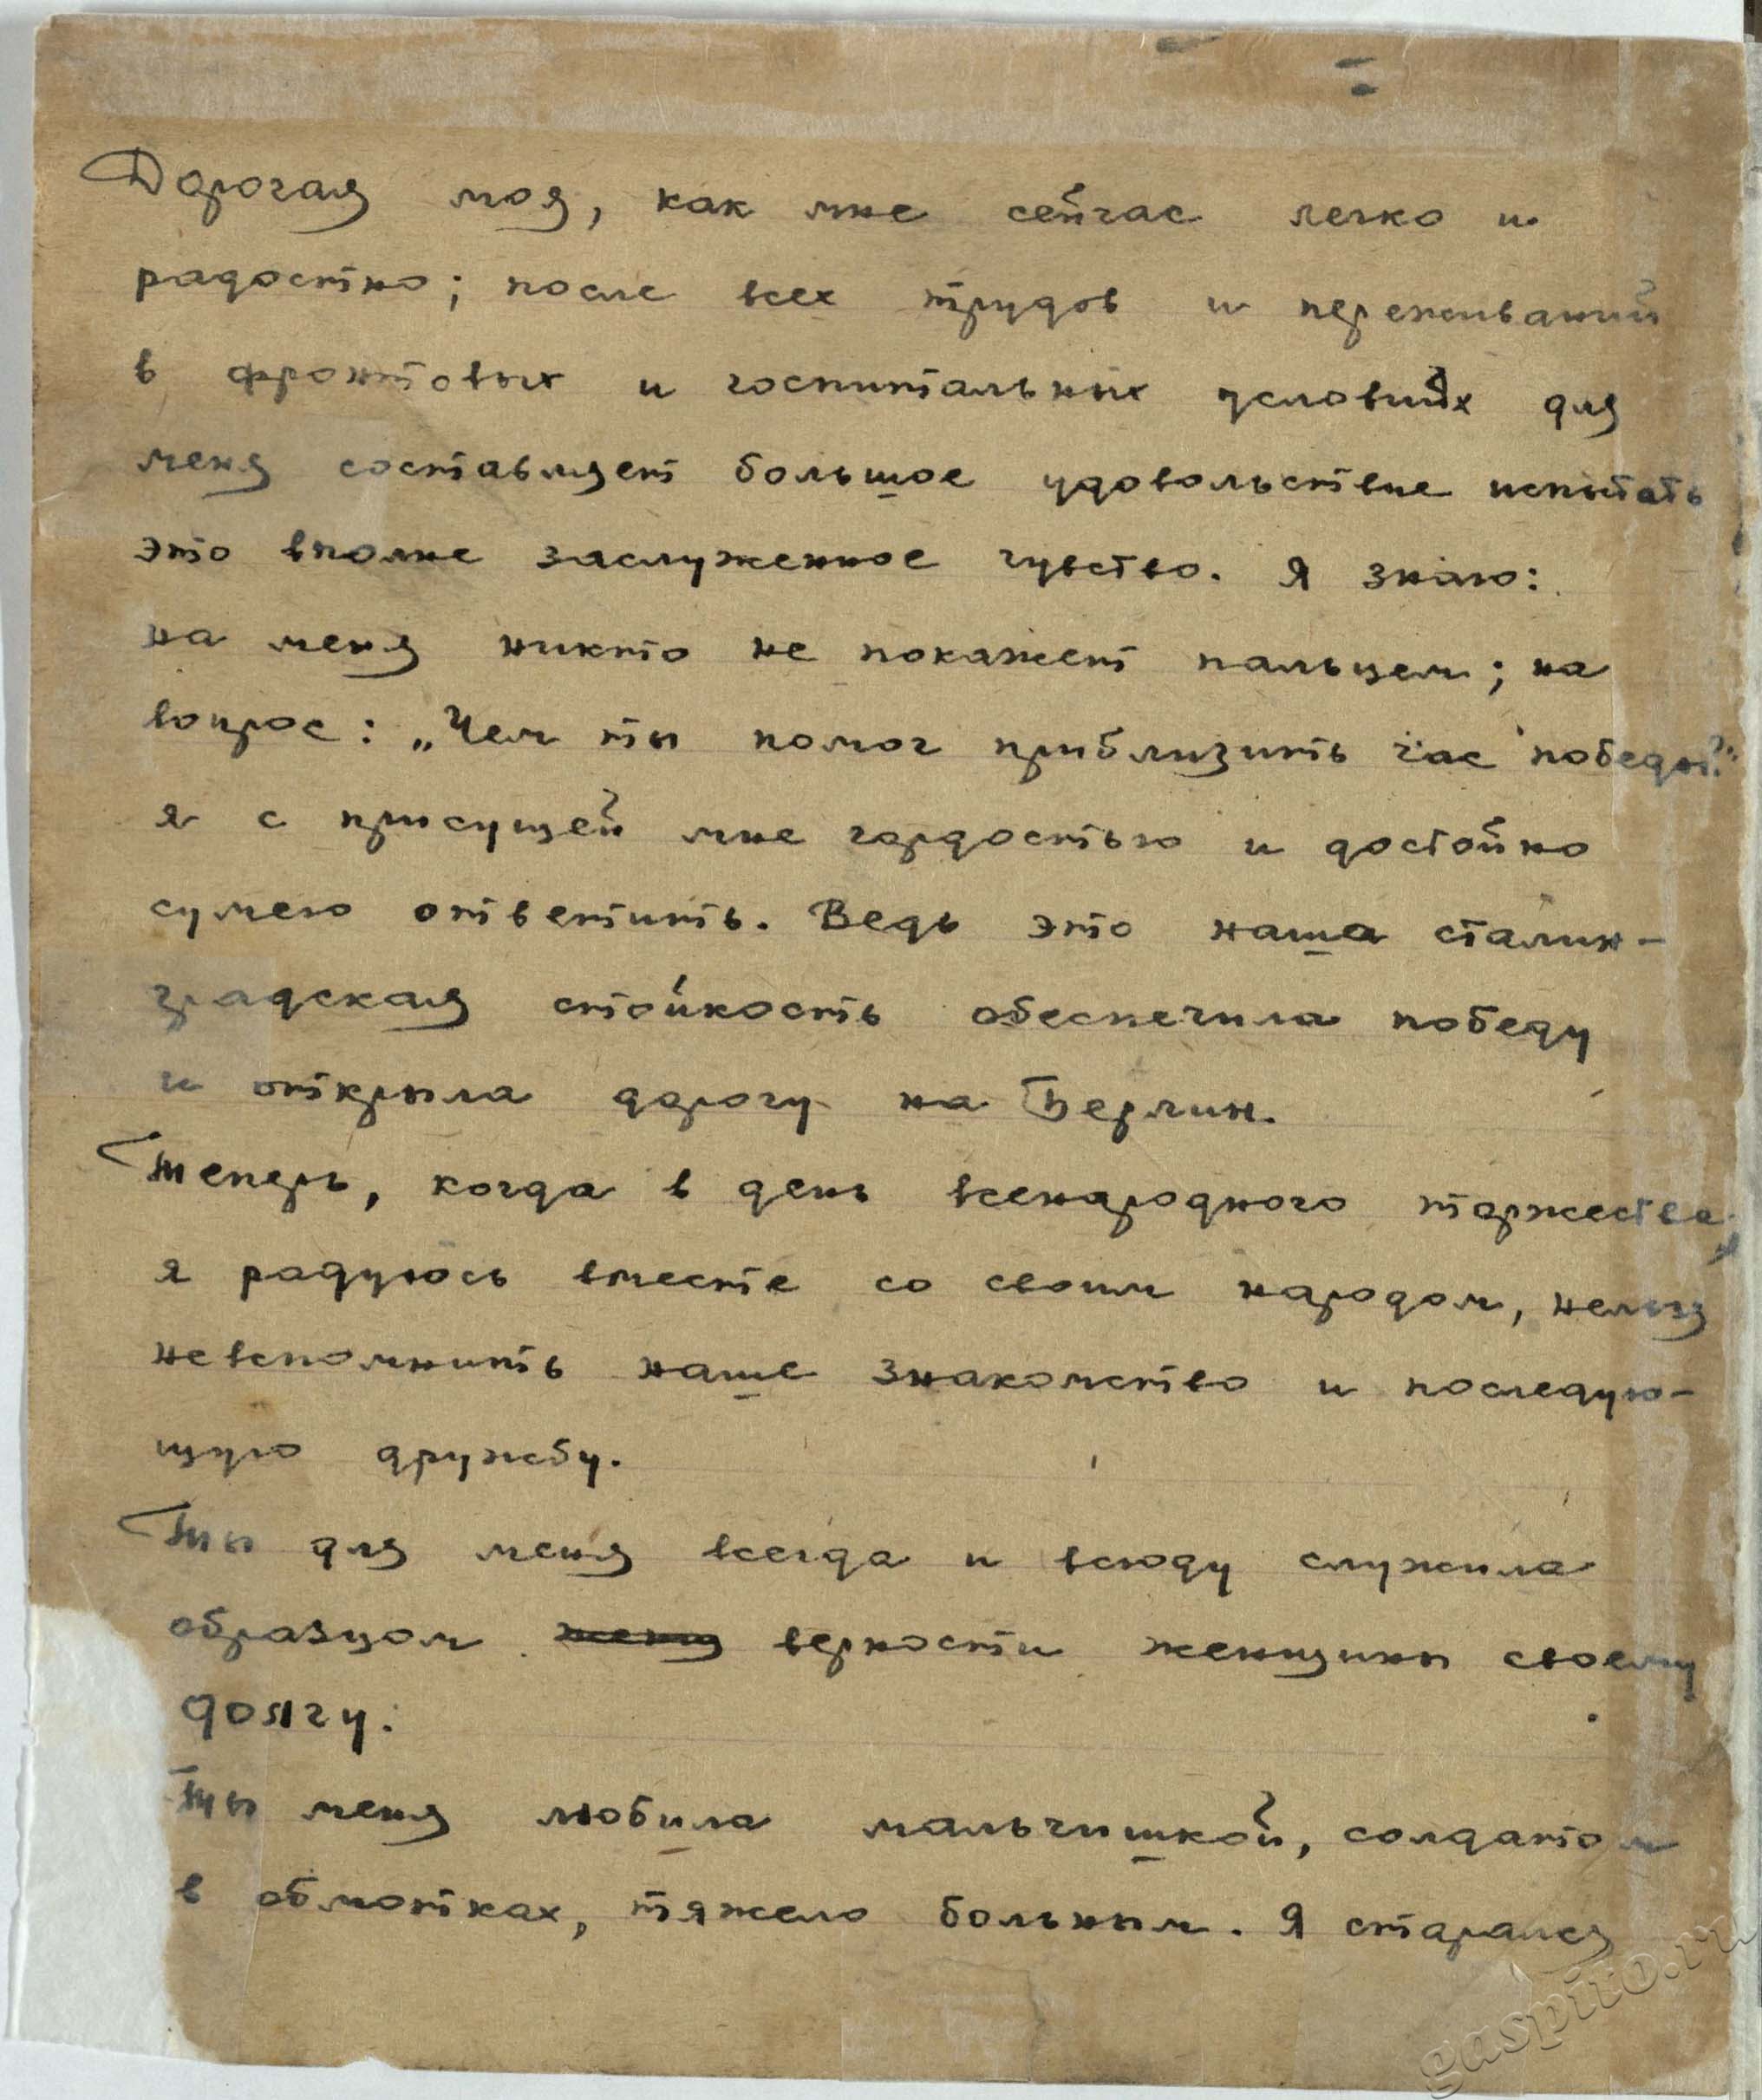 Дорогая моя, как мне сейчас легко и
радостно; после всех трудов и переживаний
в фронтовых и госпитальных условиях для
меня составляет большое удовольствие испытать
это вполне заслуженное чувство. Я знаю:
на меня никто не покажет пальцем; на
вопрос: „Чем ты помог приблизить час победы?“
я с присущей мне гордостью и достойно
сумею ответить. Ведь это наша сталин-
градская стойкость обеспечила победу
и открыла дорогу на Берлин.
Теперь, когда в день всенародного торжества
я радуюсь вместе со своим народом, нельзя
не вспомнить наше знакомство и последую-
щую дружбу.
Ты для меня всегда и всюду служила
образцом верности женщины своему
долгу.
Ты меня любила мальчишкой, солдатом
в обмотках, тяжело больным. Я старался
gaspito.ru